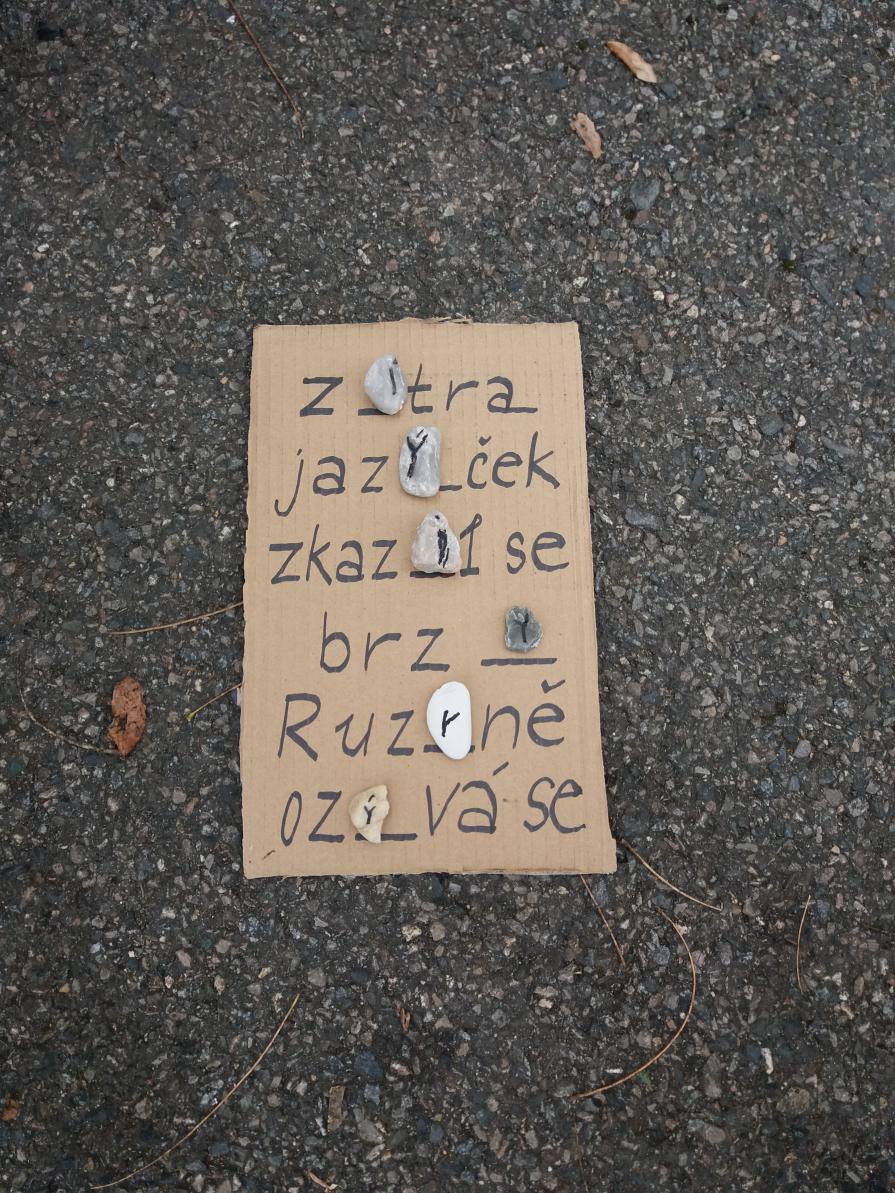 zítra
jazýček
zkazil se
brzy
Ruzyně
ozývá se